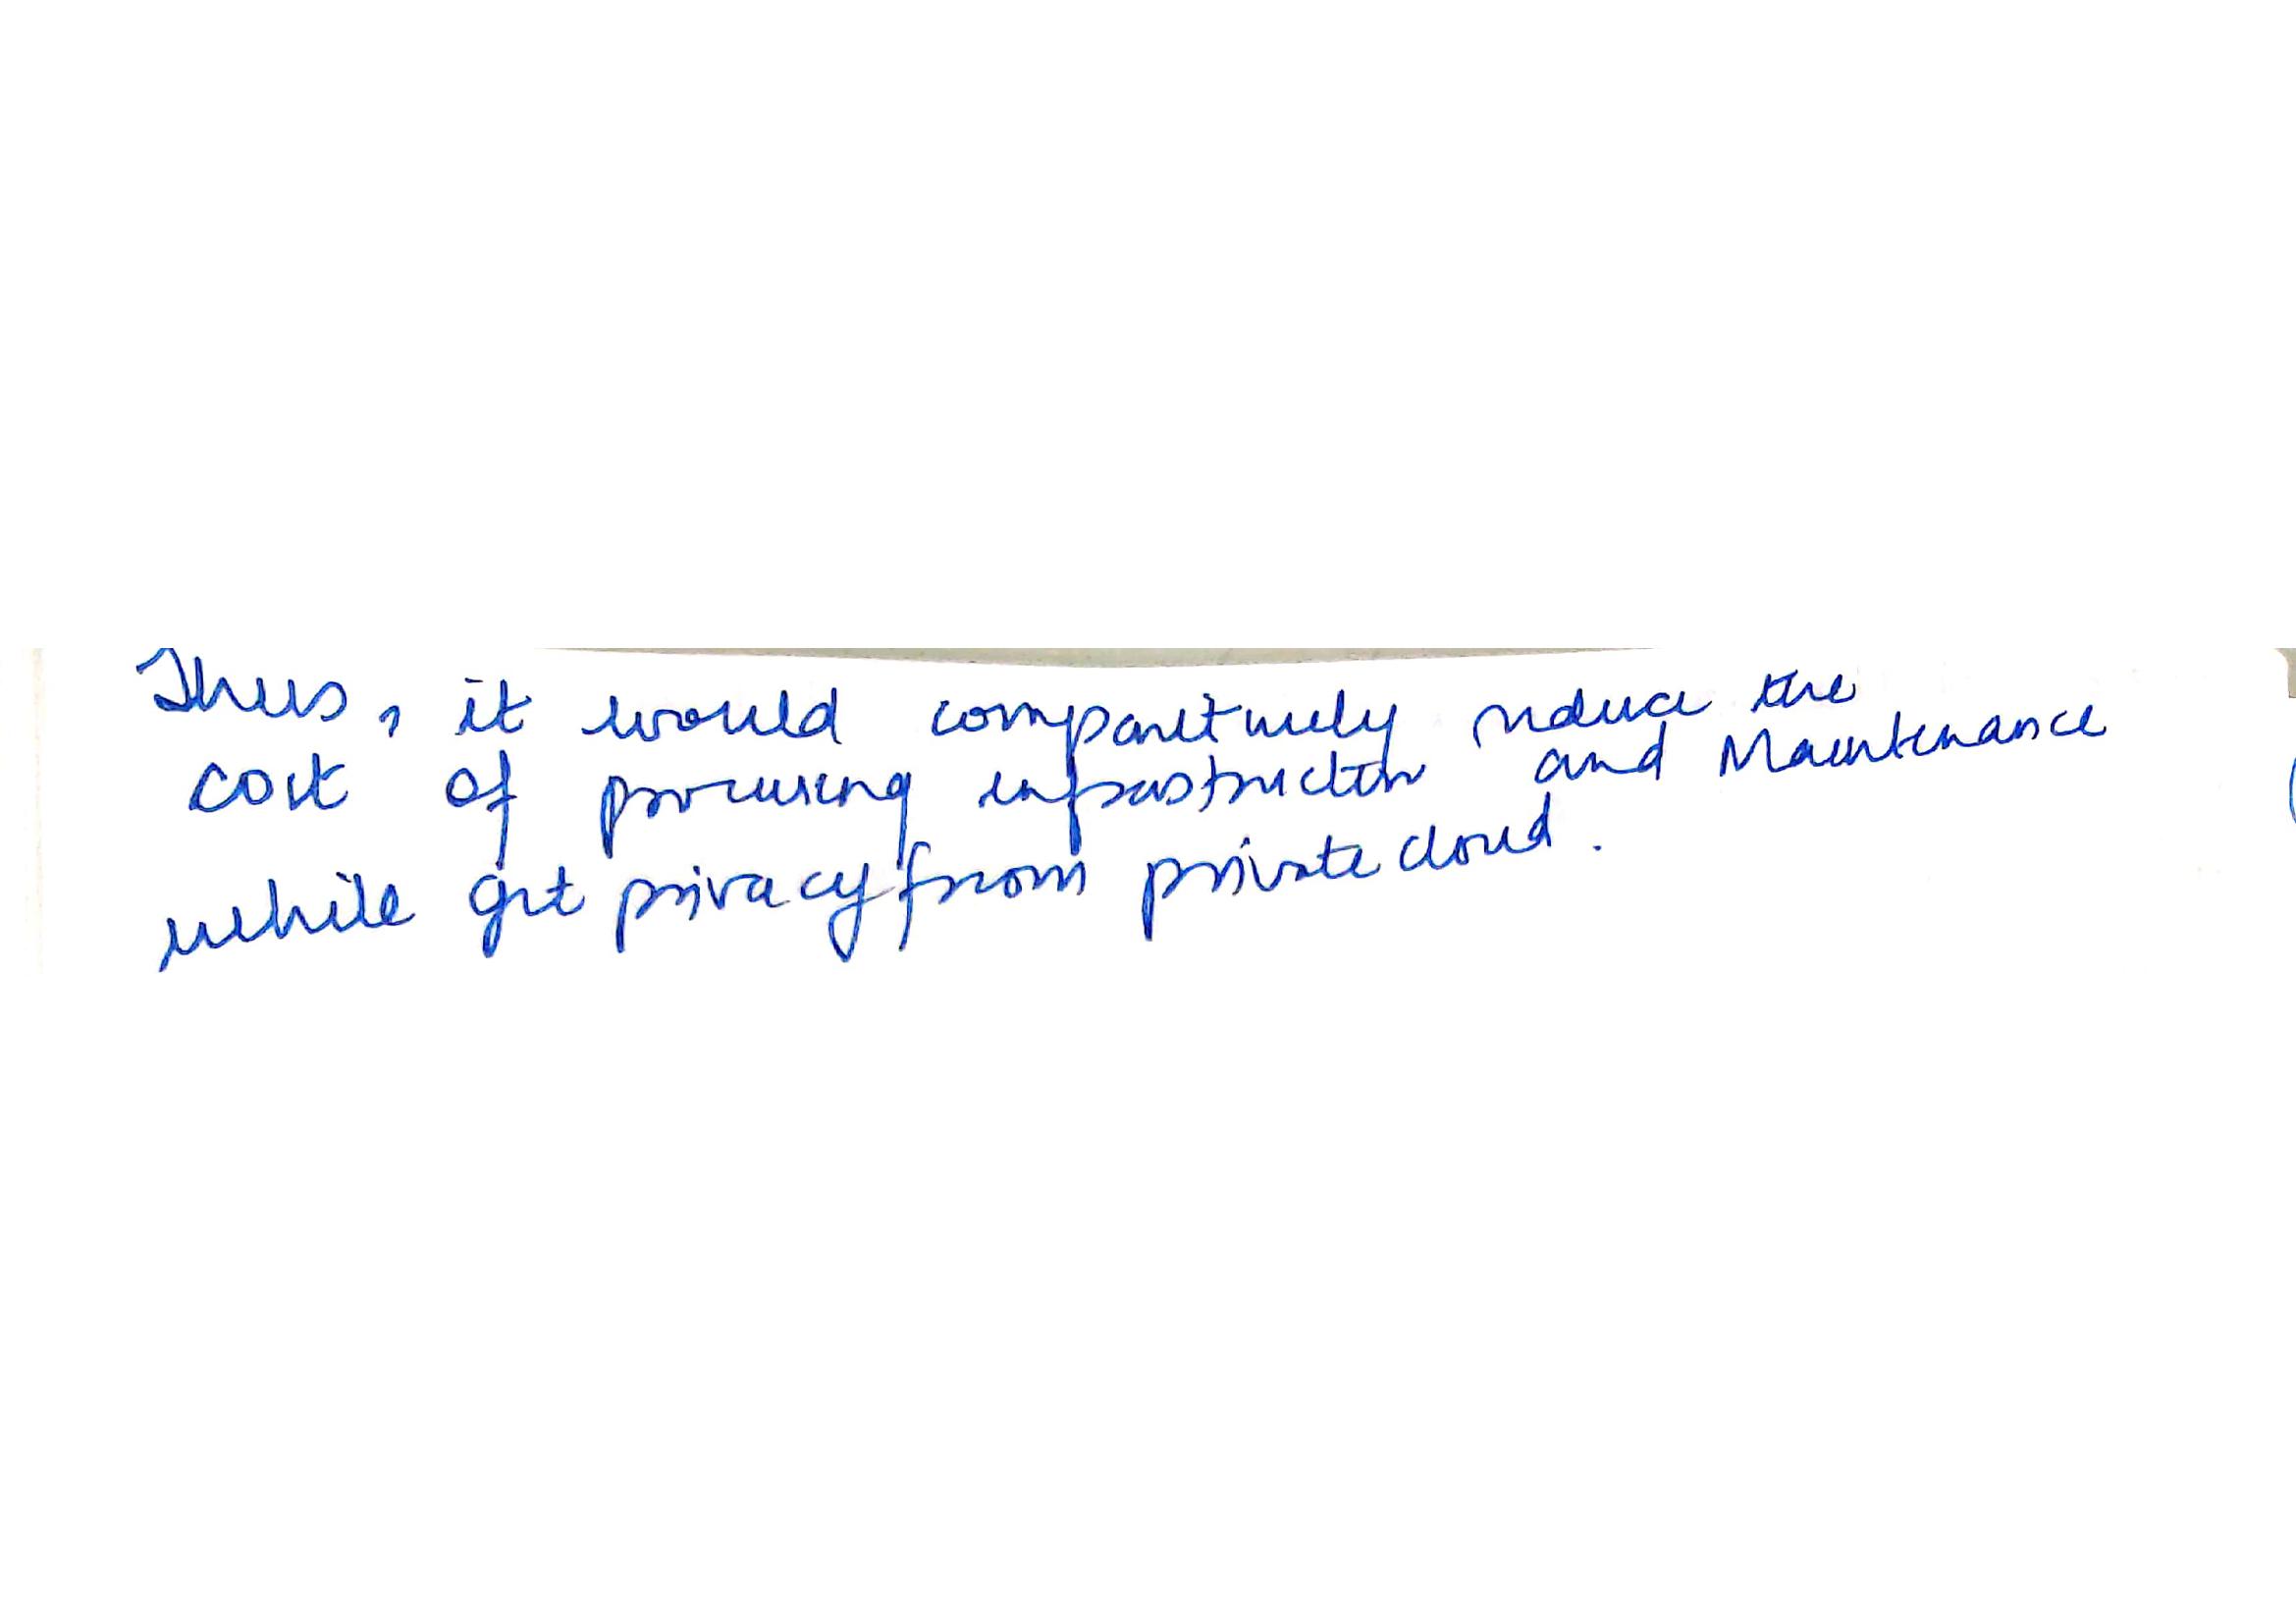 Thus, it would comparitively reduce the
cost of procuring infrastructure and Maintenance
while get privacy from private cloud.